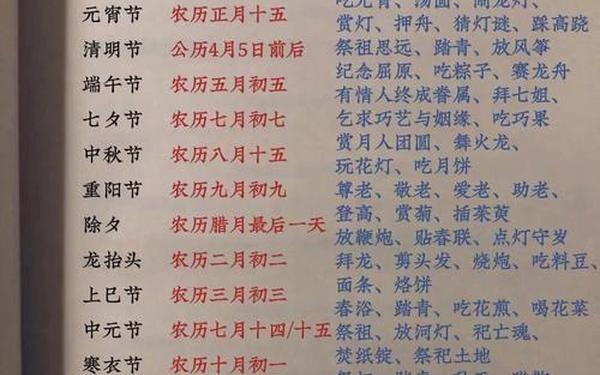 吃元宵、汤圆、闹龙灯、
元宵节 农历正月十五
赏灯、押舟、猜灯谜、踩高跷
清明节 公历4月5日前后
祭祖思远、踏青、放风筝
纪念屈原、吃粽子、赛龙舟
端午节 农历五月初五
有情人终成眷属、拜七姐、
七夕节 农历七月初七
乞求巧艺与姻缘、吃巧果
赏月人团圆、舞火龙、
中秋节 农历八月十五
玩花灯、吃月饼
重阳节 农历九月初九
尊老、敬老、爱老、助老、
登高、赏菊、插茱萸
除夕 农历腊月最后一天
放鞭炮、贴春联、点灯守岁
龙抬头 农历二月初二
拜龙、剪头发、烧炮、吃料豆、
面条、烙饼
上巳节 农历三月初三
春浴、踏青、吃花煎、喝花菜
中元节 农历七月十四/十五
祭祖、放河灯、祀亡魂、
焚纸锭、祭祀土地
寒衣节 农历十月初一